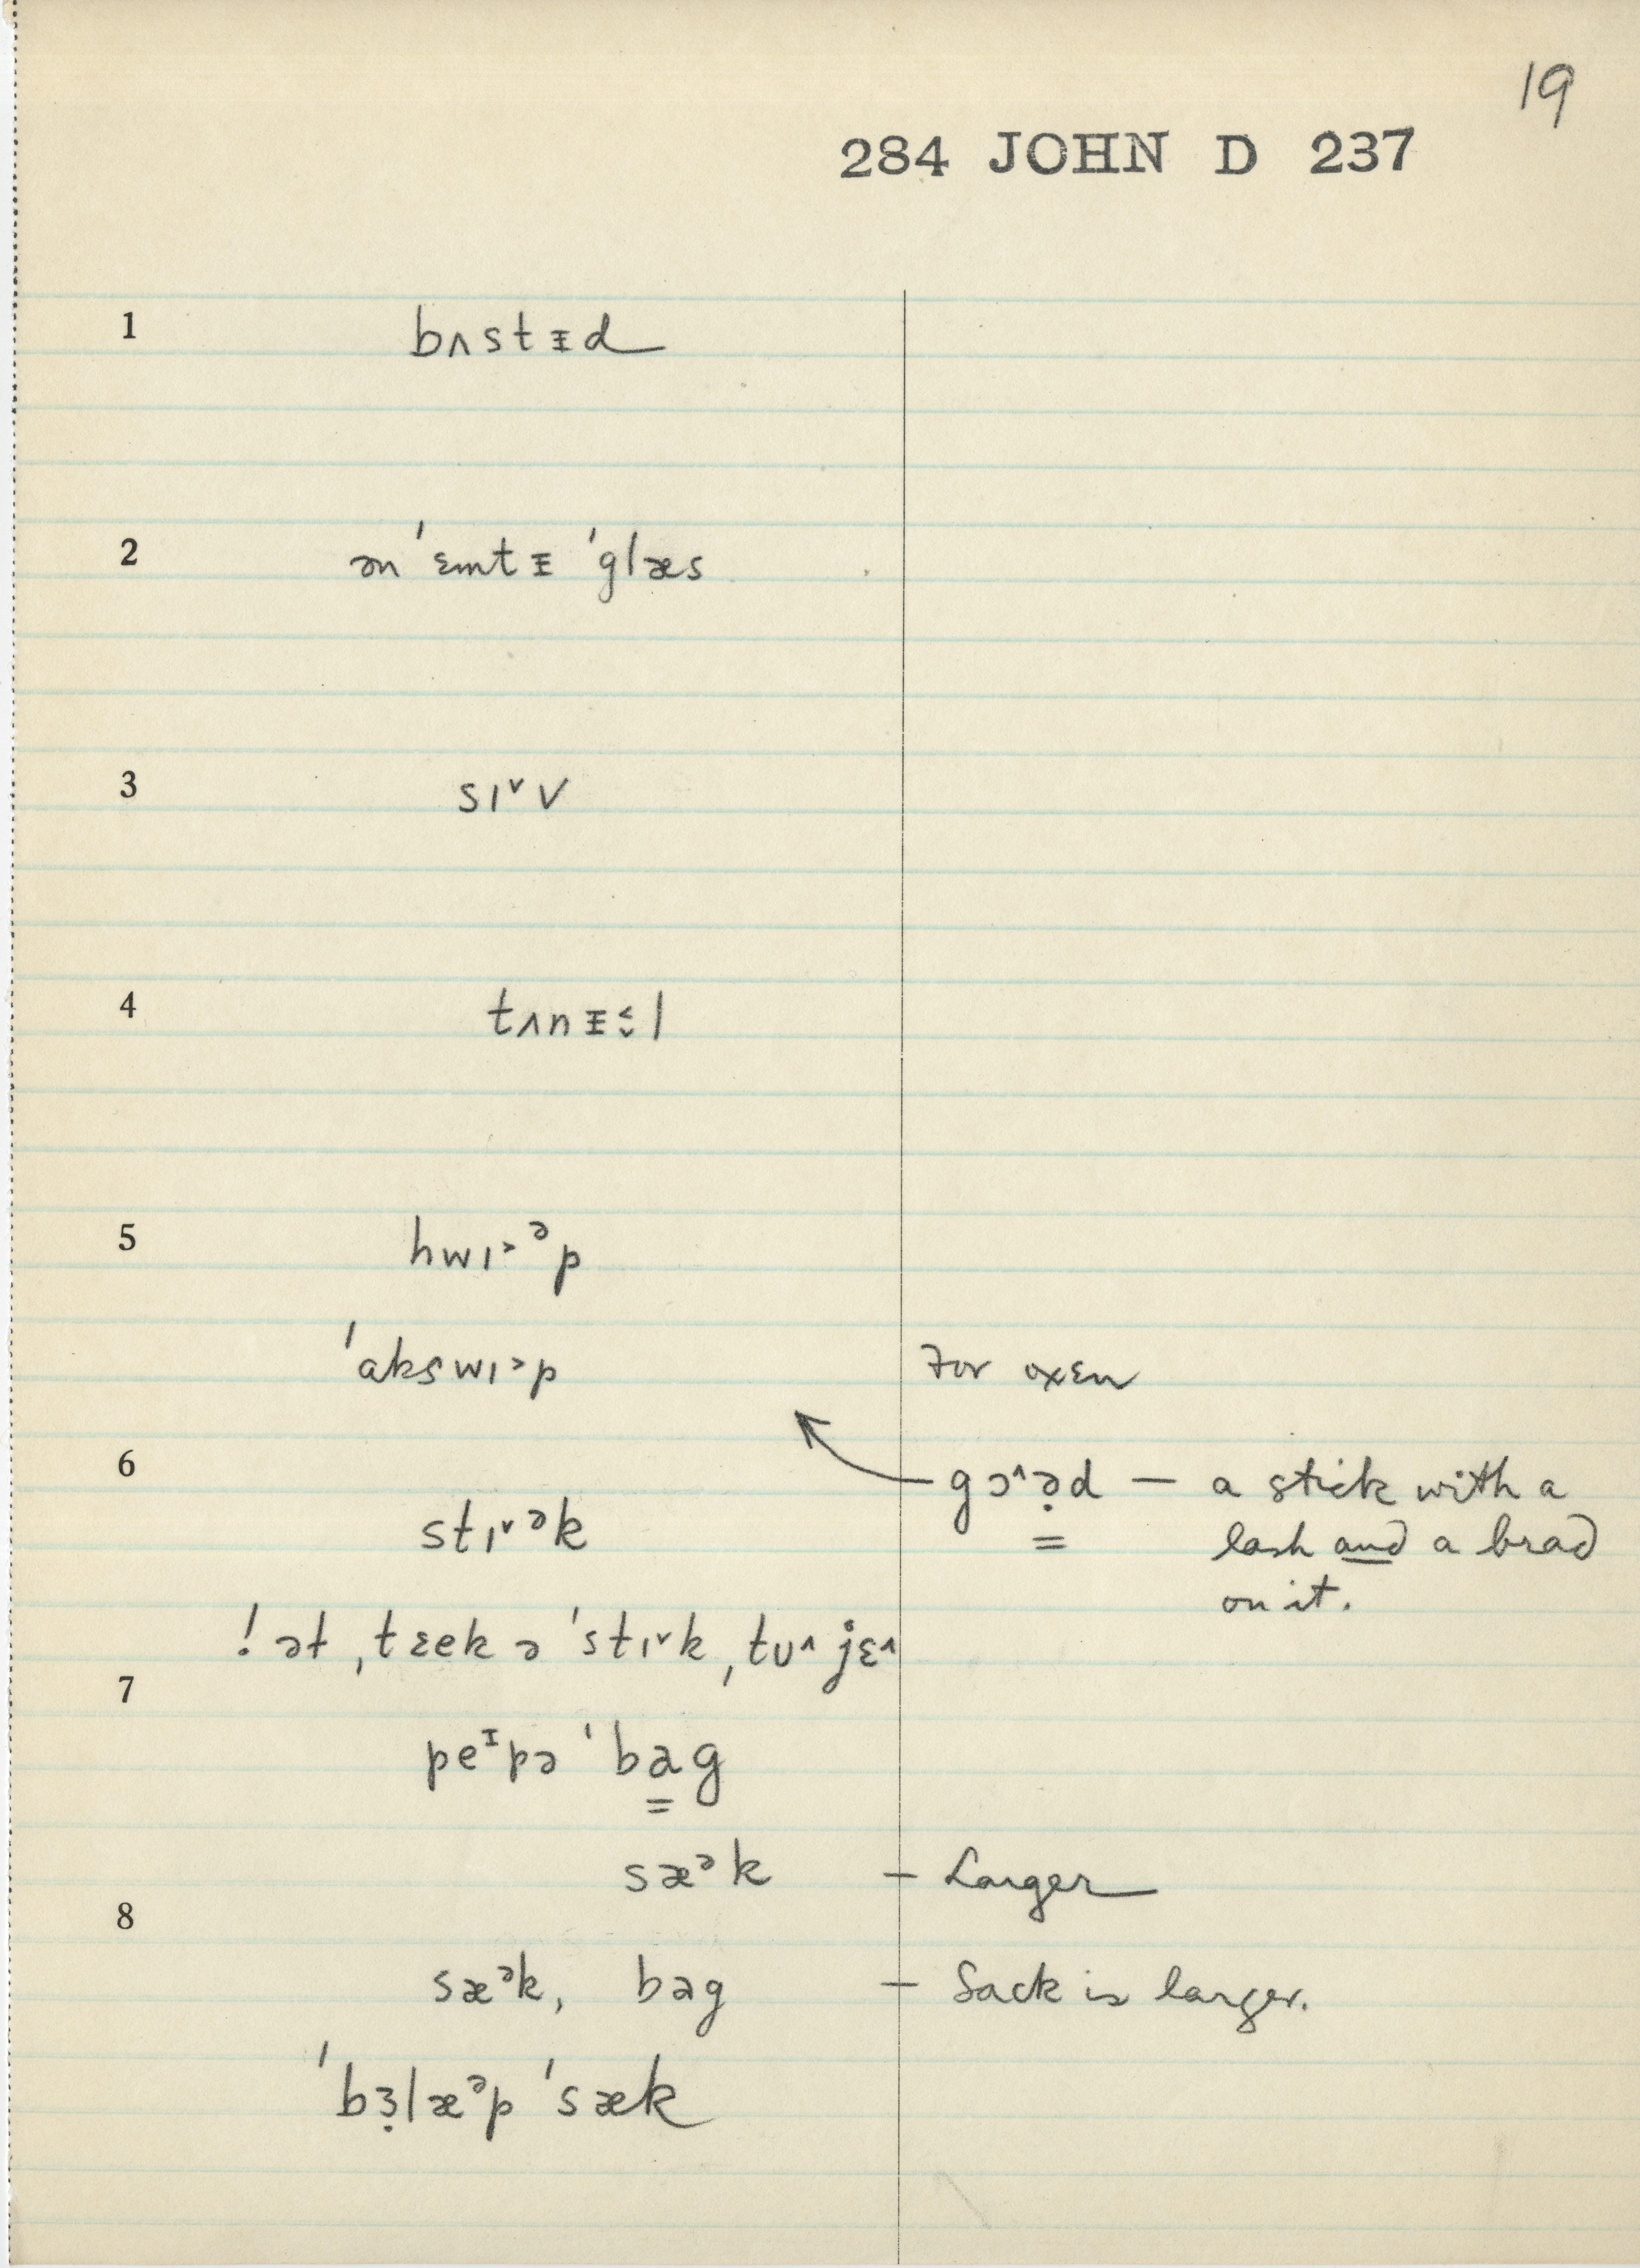 19
284 JOHN D 237
1 bʌstᵻd
2 ən ˈɛmtᵻ ˈglæs
3 sɪ˅v
4 tʌnᵻ˂˅l
5 hwɪ˃ᵊp
ˈakswɪ˃p For oxen
6 gɔ˄ə̣d — a stick with a
stɪ˅ᵊk lash and a brad
on it.
! ət ˌtɛek ə ˈstɪ˅k ˌtʊ˄ jɛ˄
7
peᶦpə ˈbag
sæᵊk – Larger
8
sæᵊk, bag – Sack is larger.
ˈbɜ̣læᵊp ˈsæk